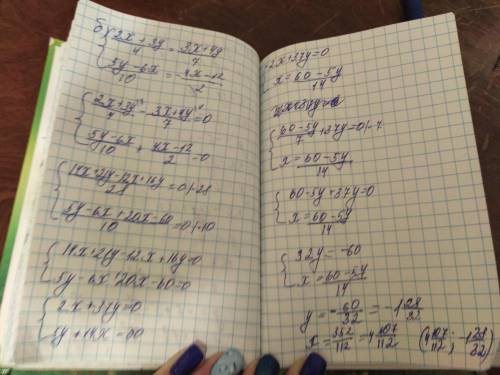 б) { (2x+3y)/4 = (3x+4y)/7
(5y-6x)/10 = -(4x-12)/2
{ (2x+3y)/4 - (3x+4y)/7 = 0
(5y-6x)/10 + (4x-12)/2 = 0
{ (14x+21y-12x+16y)/28 = 0 |·28
(5y-6x+20x-60)/10 = 0 |·10
{ 14x+21y-12x+16y=0
5y-6x+20x-60=0
{ 2x+37y=0
5y+14x=60
2x+37y=0
x = (60-5y)/14
{ (60-5y)/7 + 37y = 0 |·7
x = (60-5y)/14
{ 60-5y+37y=0
x = (60-5y)/14
{ 32y = -60
x = (60-5y)/14
y = -60/32 = -1 28/32